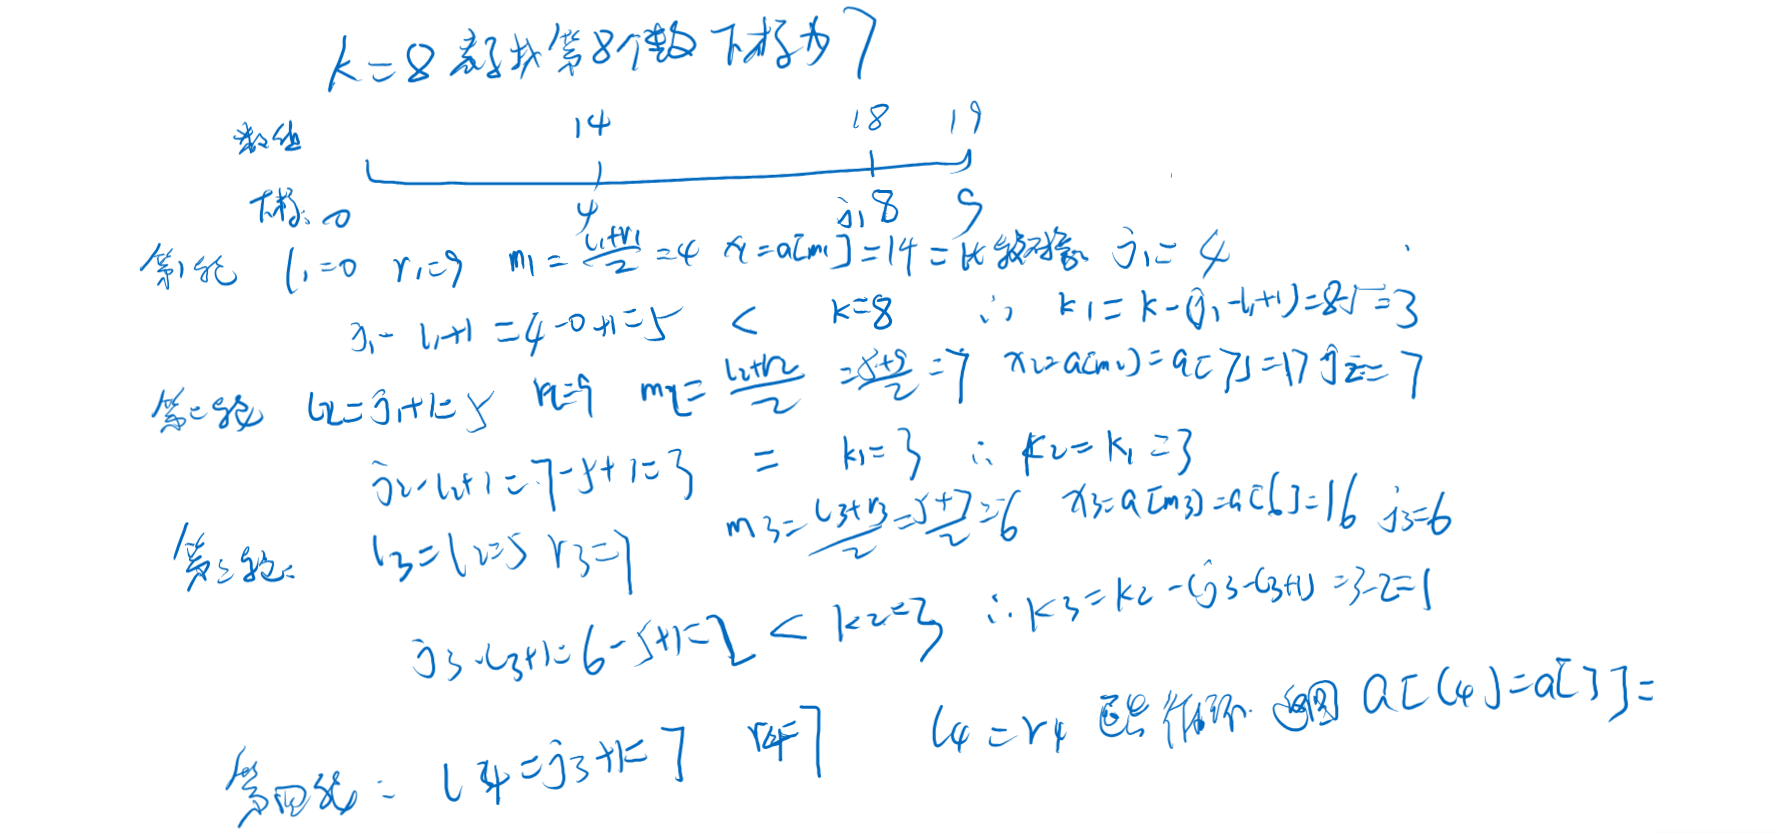 k=8 寻找第8个数 下标为7
数值 14 18 19
下标: 0 4 j₁8 9
第1轮 l₁=0 r₁=9 m₁=(l₁+r₁)/2=4 x₁=a[m₁]=14=比较对象 j₁=4
j₁-l₁+1=4-0+1=5 < k=8 ∴ k₁=k-(j₁-l₁+1)=8-5=3
第二轮 l₂=j₁+1=5 r₂=9 m₂=(l₂+r₂)/2=(5+9)/2=7 x₂=a[m₂]=a[7]=17 j₂=7
j₂-l₂+1=7-5+1=3 = k₁=3 ∴ k₂=k₁=3
第三轮: l₃=l₂=5 r₃=7 m₃=(l₃+r₃)/2=(5+7)/2=6 x₃=a[m₃]=a[6]=16 j₃=6
j₃-l₃+1=6-5+1=2 < k₂=3 ∴k₃=k₂-(j₃-l₃+1)=3-2=1
第四轮: l₄=j₃+1=7 r₄=7 l₄=r₄ 退出循环 返回 a[l₄]=a[7]=